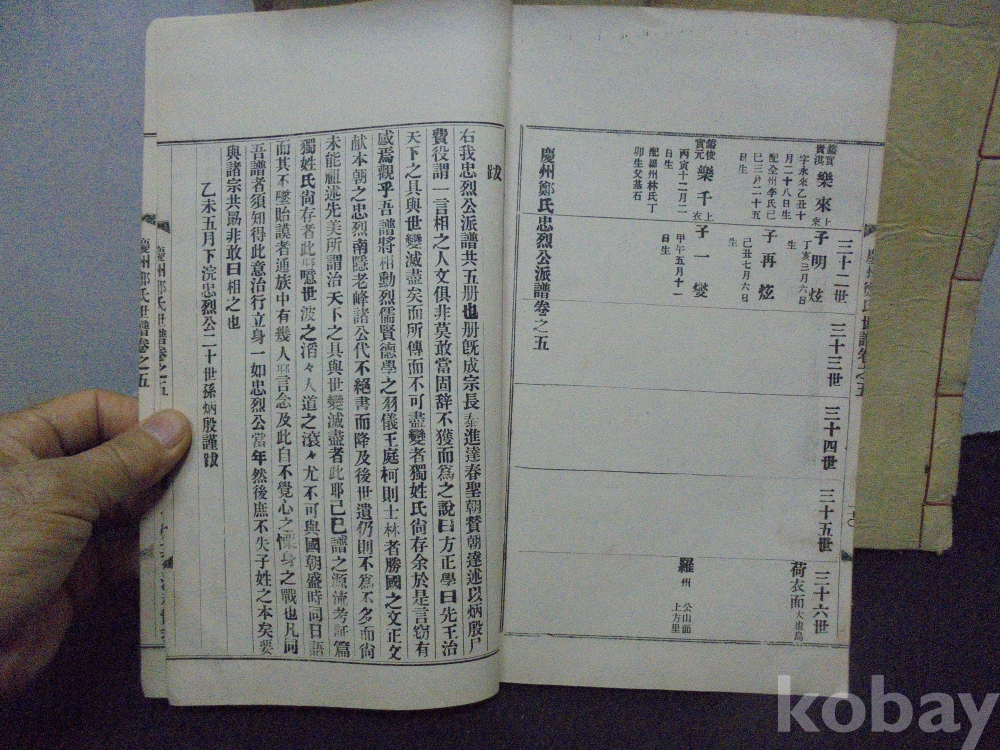 慶州鄭氏世譜卷之五
三十二世
三十三世
三十四世
三十五世
三十六世
樂來
字永來乙丑十
月二十八日生
配全州李氏己
巳三月二十五
日生
子明炫
丁亥三月六日
生
子再炫
己丑七月六日
生
荷衣面
樂千
丙寅十二月二
日生
配羅州林氏丁
卯生父基石
子一燮
甲午五月十一
日生
羅州
公山面
上方里
慶州鄭氏忠烈公派譜卷之五
跋
右我忠烈公派譜共五册也册旣成宗長泰進達春聖朝贊朝達述以炳殷尸
費役謂一言相之人文俱非莫敢當固辞不獲而爲之說曰方正學曰先王治
天下之具與世變滅盡矣而所傳而不可盡變者獨姓氏尙存余於是言窃有
感焉觀乎吾譜將相勳烈儒賢德學之羽儀王庭柯則士林者勝國之文正文
献本朝之忠烈南隱老峰諸公代不絕書而降及後世遺仍則不爲不多而尙
未能祖述先美所謂治天下之具與世變滅盡者此耶己巳譜之源流考証篇
獨姓氏尙存者此耶噫世波之滔々人道之滾々尤不可與國朝盛時同日語
而其不墜貽謨者通族中有幾人耶言念及此自不覺心之慄身之戰也凡同
吾譜者須知得此意治行立身一如忠烈公當年然後庶不失子姓之本矣要
與諸宗共勗非敢曰相之也
乙未五月下浣忠烈公二十世孫炳殷謹跋
慶州鄭氏世譜卷之五
慶州鄭氏世譜卷之五
kobay